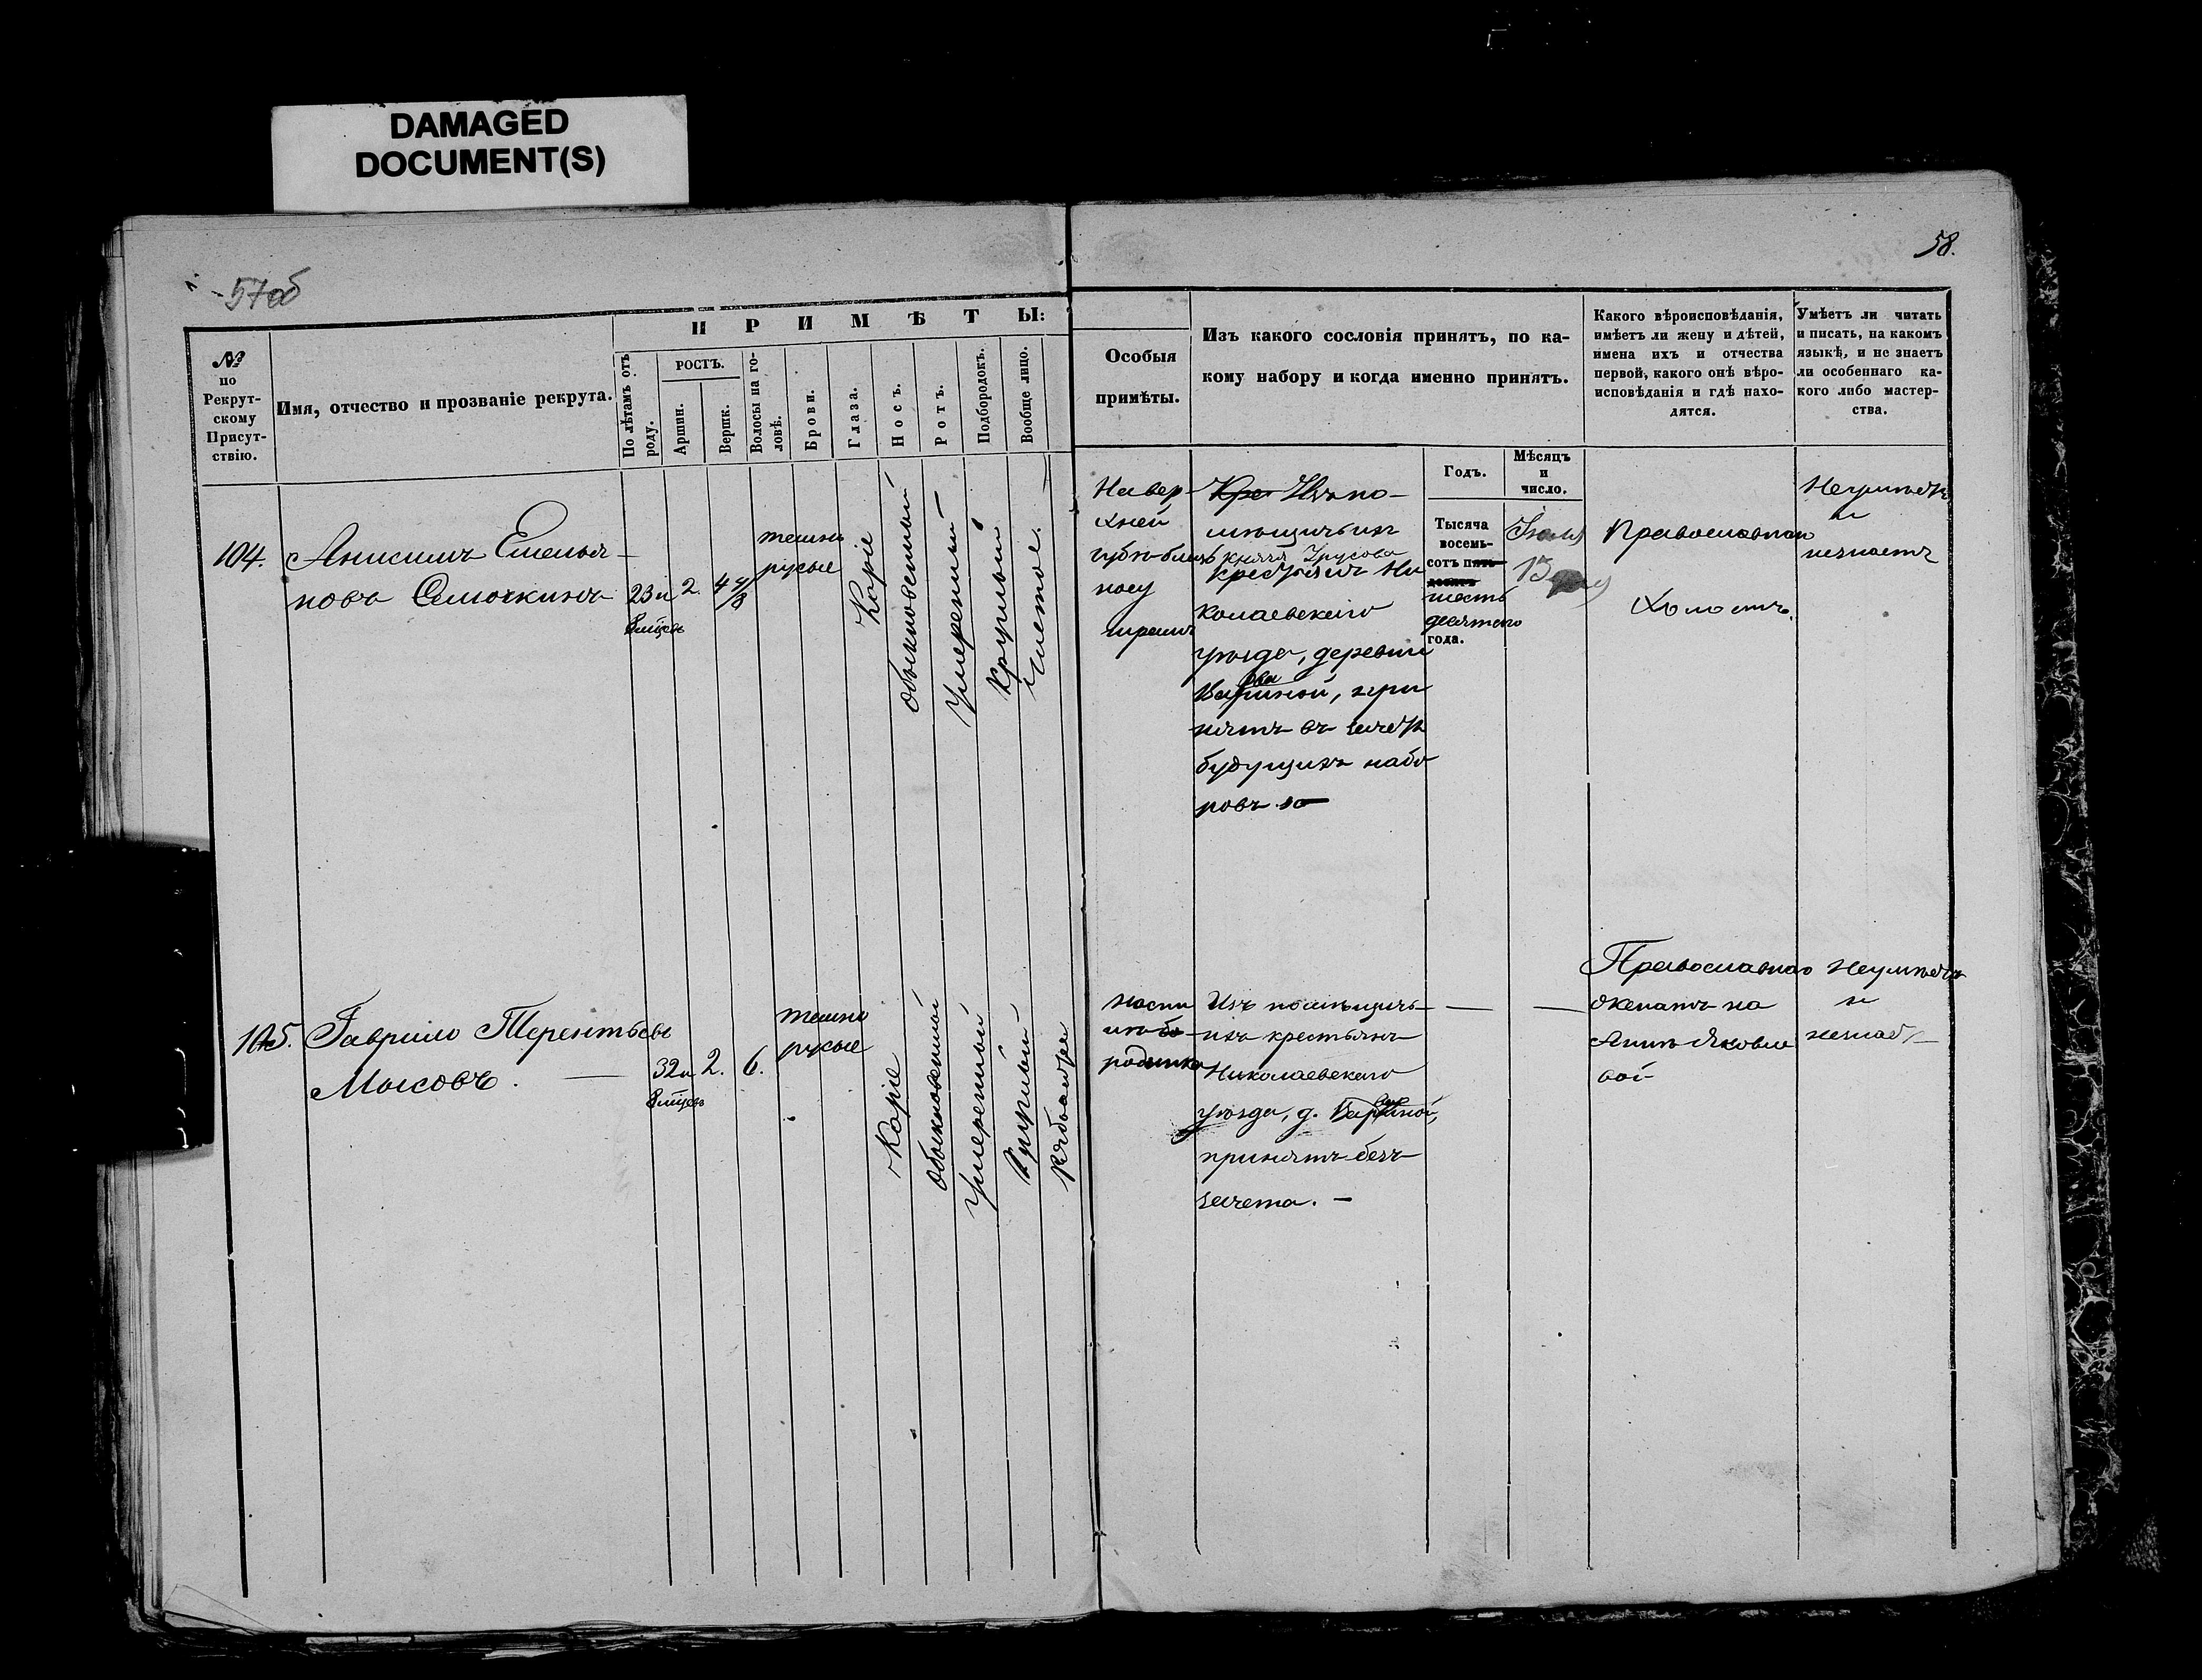 DAMAGED
DOCUMENT(S)
57об
58.
ПРИМѢТЫ:
№
по
Рекрут-
скому
Присут-
ствію.
Имя, отчество и прозваніе рекрута.
По лѣтамъ отъ
роду.
РОСТЪ.
Аршин.
Вершк.
Волосы на го-
ловѣ.
Брови.
Глаза.
Носъ.
Ротъ.
Подбородокъ.
Вообще лицо.
Особыя
примѣты.
Изъ какого сословія принятъ, по ка-
кому набору и когда именно принятъ.
Годъ.
Мѣсяцъ
и
число.
Какого вѣроисповѣданія,
имѣетъ ли жену и дѣтей,
имена ихъ и отчества
первой, какого онѣ вѣро-
исповѣданія и гдѣ нахо-
дятся.
Умѣетъ ли читать
и писать, на какомъ
языкѣ, и не знаетъ
ли особеннаго ка-
кого либо мастер-
ства.
104.
Анисимъ Емелья-
новъ
23 и
2.
4 4/8
темно
русые
Каріе
обыкновенный
умеренный
круглый
чистое.
На вер-
хней
губѣ близь
носу
шрамъ
Кре Изъ по-
мѣщичьихъ
князя Трусова
крестьянъ Ни
колаевскаго
уѣзда, деревни
при
нятъ въ зачетъ
будущихъ набо
ровъ
Тысяча
восемь-
сотъ пять-
десятъ
шесть
десятого
года.
15
Православнаго
Холостъ.
Неумѣетъ
и
незнаетъ
105.
Гаврило Терентьевъ
Мысовъ.
32 и
2.
6.
темно
русые
Каріе
обыкновенный
умеренный
круглый
рябоватое
родинка
Изъ помѣщичь-
ихъ крестьянъ
Николаевскаго
уѣзда, д.
принятъ безъ
зачета. —
Православнаго
женатъ на
Аннѣ Яковле
вой
Неумѣетъ
и